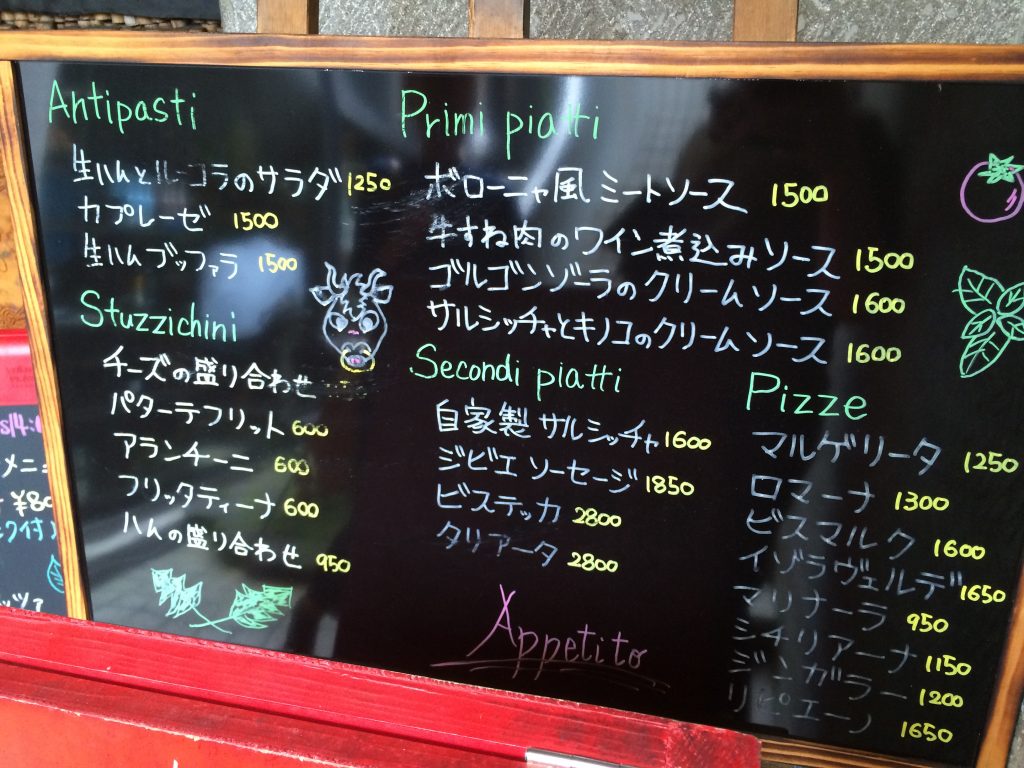 Antipasti
生ハムとルーコラのサラダ 1250
カプレーゼ 1500
生ハムブッファラ 1500
Stuzzichini
チーズの盛り合わせ
パターテフリット 600
アランチーニ 600
フリッタティーナ 600
ハムの盛り合わせ 950
Primi piatti
ボローニャ風 ミートソース 1500
牛すね肉のワイン煮込みソース 1500
ゴルゴンゾーラのクリームソース 1600
サルシッチャとキノコのクリームソース 1600
Secondi piatti
自家製 サルシッチャ 1600
ジビエ ソーセージ 1850
ビステッカ 2800
タリアータ 2800
Pizze
マルゲリータ 1250
ロマーナ 1300
ビスマルク 1600
イゾラヴェルデ 1650
マリナーラ 950
シチリアーナ 1150
ジンガラー 1200
リピエーノ 1650
Appetito
メニュ
¥80